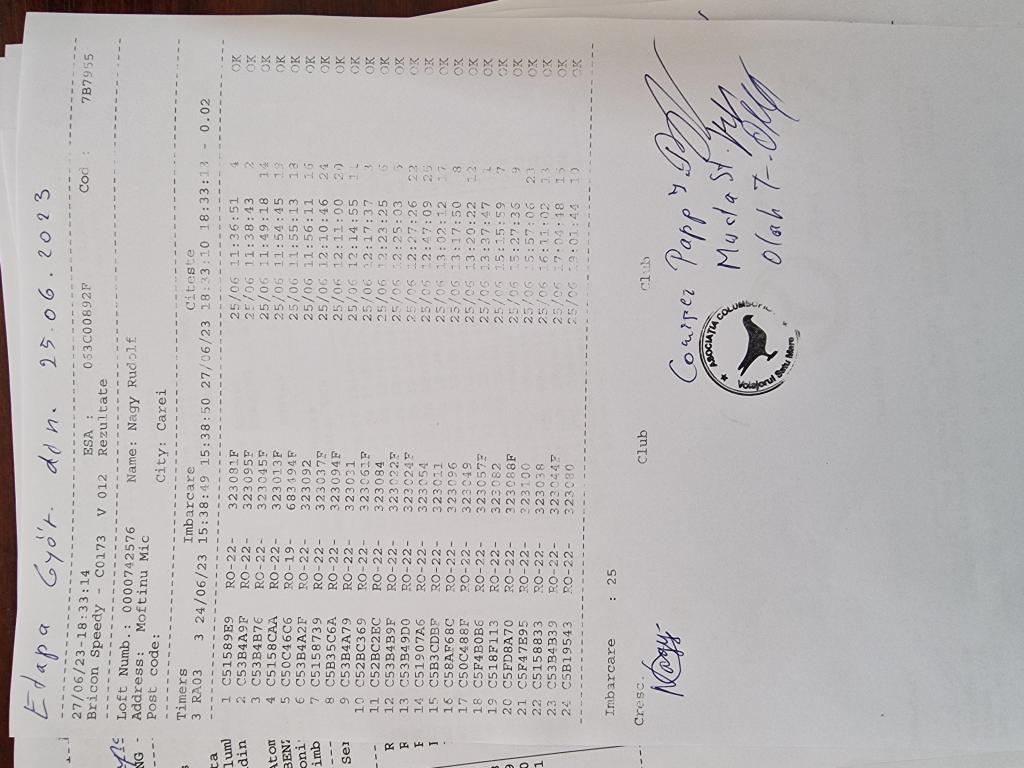 Etapa Győr. din. 25.06.2023
27/06/23-18:33:14 ESA : 063C00892F Cod : 7B7955
Bricon Speedy - C0173 V 012 Rezultate
Loft Numb.: 0000742576 Name: Nagy Rudolf
Address : Moftinu Mic
Post code: City: Carei
Timers Imbarcare Citeste
3 RA03 3 24/06/23 15:38:49 15:38:50 27/06/23 18:33:10 18:33:13 - 0.02
1 C51589E9 RO-22- 323081F 25/06 11:36:51 4 OK
2 C53B4A9F RO-22- 323095F 25/06 11:38:43 2 OK
3 C53B4B7C RO-22- 323045F 25/06 11:49:18 14 OK
4 C5158CAA RO-22- 323013F 25/06 11:54:45 19 OK
5 C50C46C6 RO-19- 683494F 25/06 11:55:13 18 OK
6 C53B4A2F RO-22- 323092 25/06 11:56:11 16 OK
7 C5158739 RO-22- 323037F 25/06 12:10:46 24 OK
8 C5B35C6A RO-22- 323094F 25/06 12:11:00 20 OK
9 C53B4A79 RO-22- 323031 25/06 12:14:55 11 OK
10 C52BC369 RO-22- 323061F 25/06 12:17:37 3 OK
11 C52BC2EC RO-22- 323084 25/06 12:23:25 6 OK
12 C53B4B9F RO-22- 323022F 25/06 12:25:03 5 OK
13 C53B49D0 RO-22- 323024F 25/06 12:27:26 22 OK
14 C51907A6 RO-22- 323054 25/06 12:47:09 25 OK
15 C5B3CDBF RO-22- 323011 25/06 13:02:12 17 OK
16 C58AF68C RO-22- 323096 25/06 13:17:50 8 OK
17 C50C488F RO-22- 323049 25/06 13:20:22 12 OK
18 C5F4B0B6 RO-22- 323057F 25/06 13:37:47 1 OK
19 C518F113 RO-22- 323082 25/06 15:15:59 7 OK
20 C5FD8A70 RO-22- 323088F 25/06 15:27:36 9 OK
21 C5F47E95 RO-22- 323100 25/06 15:57:06 23 OK
22 C5158833 RO-22- 323038 25/06 16:11:02 13 OK
23 C53B4B39 RO-22- 323044F 25/06 17:04:48 15 OK
24 C5B19543 RO-22- 323080 25/06 19:01:44 10 OK
Imbarcare : 25
Cresc. Club Club
Nagy
Comisar Papp
Muda St.
Olah T.
ASOCIATIA COLUMBOFILA
Voiajorul Satu Mare